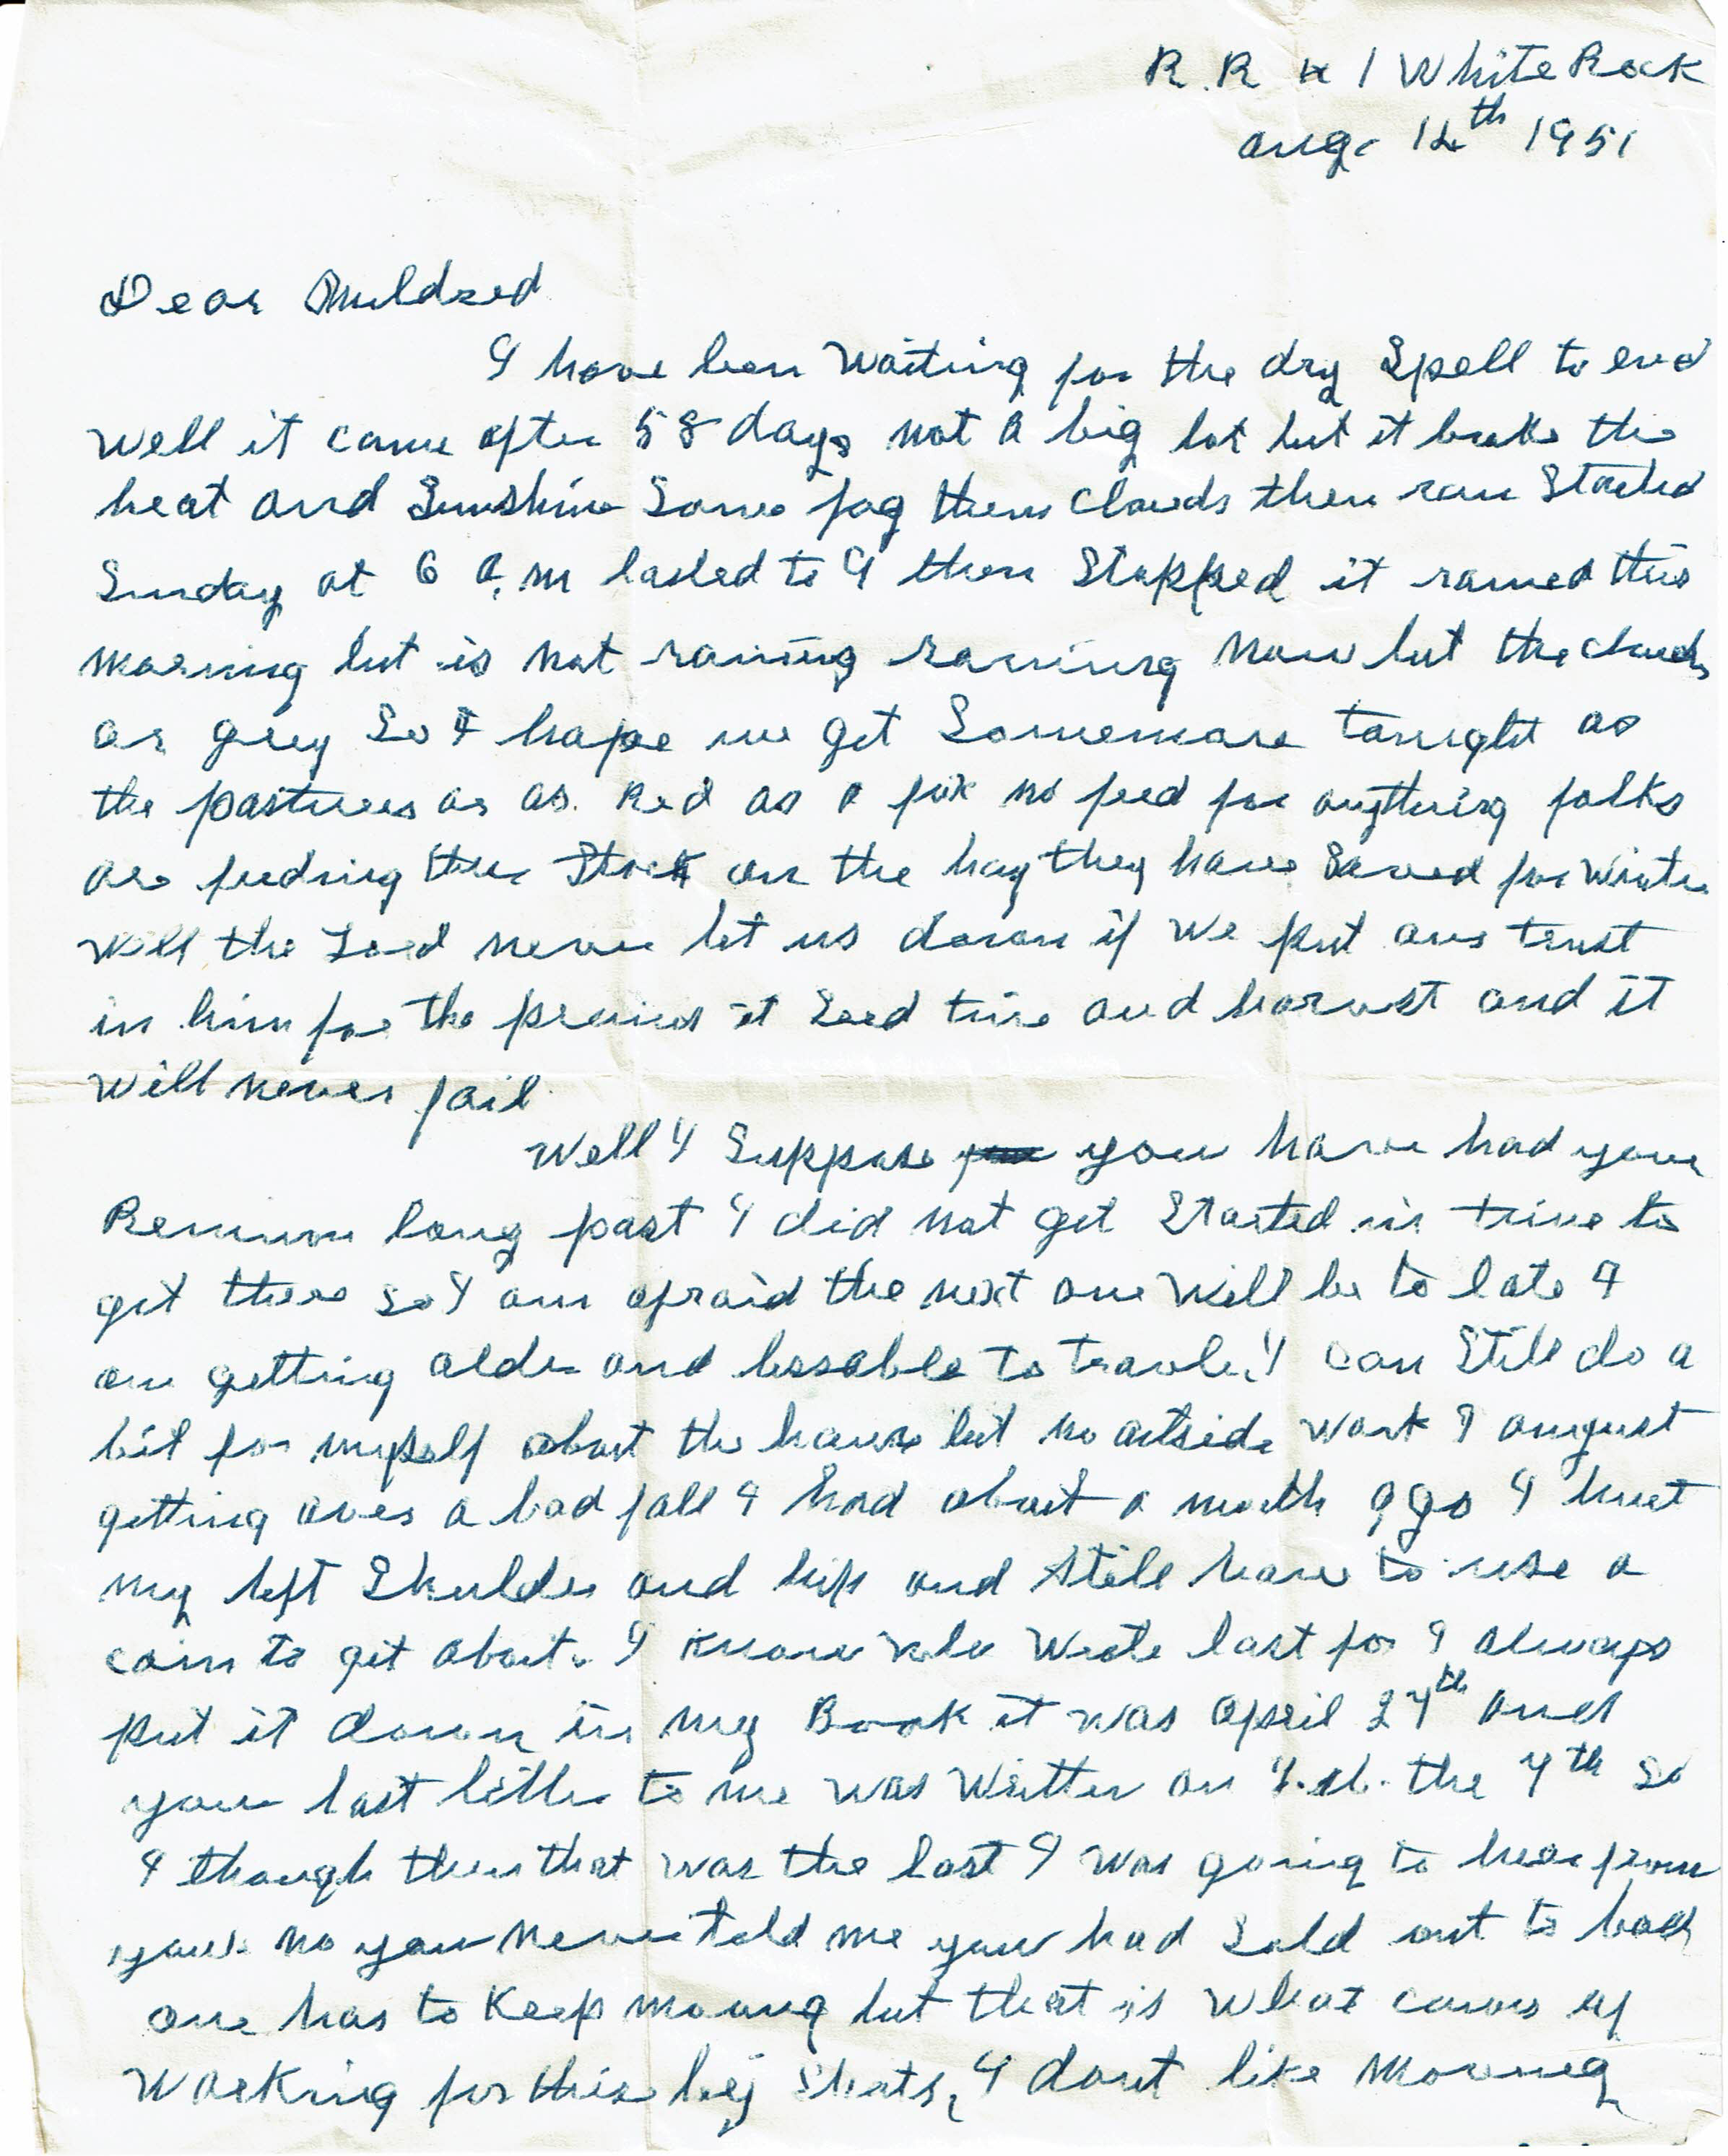 R.R # 1 White Rock
Aug. 14th 1951
Dear Muldred
I have been Waiting for the dry Spell to end
Well it came after 58 days not a big lot but it broke the
heat and Sunshine Some fog then Clouds then rain Started
Sunday at 6 A.M lasted to 9 then Stopped it rained this
morning but is not raining raining Now but the clouds
ar grey So I hope we get Somemore tonight as
the pastures ar as Red as a fox no feed for anything folks
are feeding ther Stock on the hay they have Saved for Winter
Well the Lord never let us down if we put our trust
in him for the promis it Seed time and harvest and it
will never fail
Well I Suppose you have had your
Reunion long past I did not get Started in time to
get there So I am afraid the next one Will be to late I
am getting older and lessable to travle. I can Still do a
bit for myself about the house but no outside Work I august
getting over a bad fall I had about a month ago I hurt
my left Shulder and hip and Still have to use a
cain to get about. I know who Wrote last for I always
put it down in my Book it was April 27th and
your last letter to me was Written on the 7th So
I though then that was the last I was going to hear from
you. no you never told me you had Sold out to bad
one has to Keep moving but that is what coms of
Working for this big Shots, I dont like Moveing